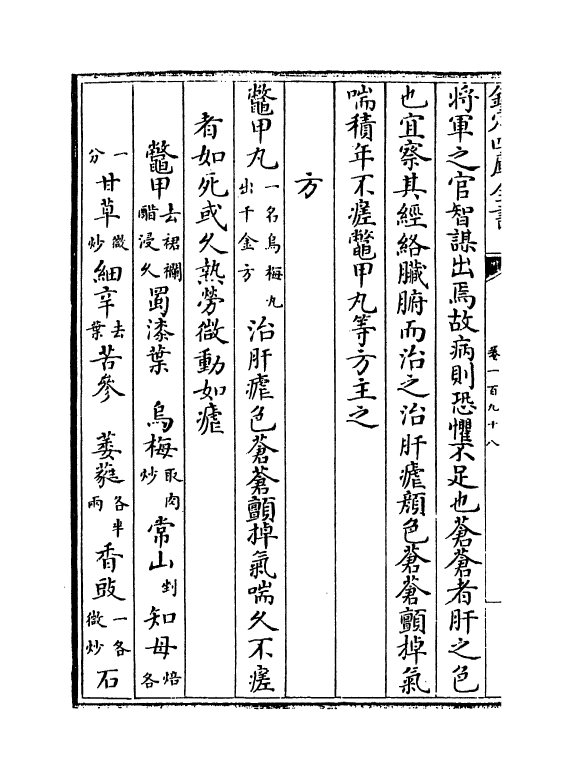 欽定四庫全書
卷一百九十八
將軍之官智謀出焉故病則恐懼不足也蒼蒼者肝之色
也宜察其經絡臟腑而治之治肝瘧顏色蒼蒼顫掉氣
喘積年不瘥鼈甲丸等方主之
方
鼈甲丸一名烏梅丸出千金方治肝瘧色蒼蒼顫掉氣喘久不瘥
者如死或久熱勞微動如瘧
鼈甲去裙襴醋浸久蜀漆葉 烏梅取肉炒常山剉知母焙各
一分甘草微炒細辛去葉苦參 萎蕤各半兩香豉一各微炒石